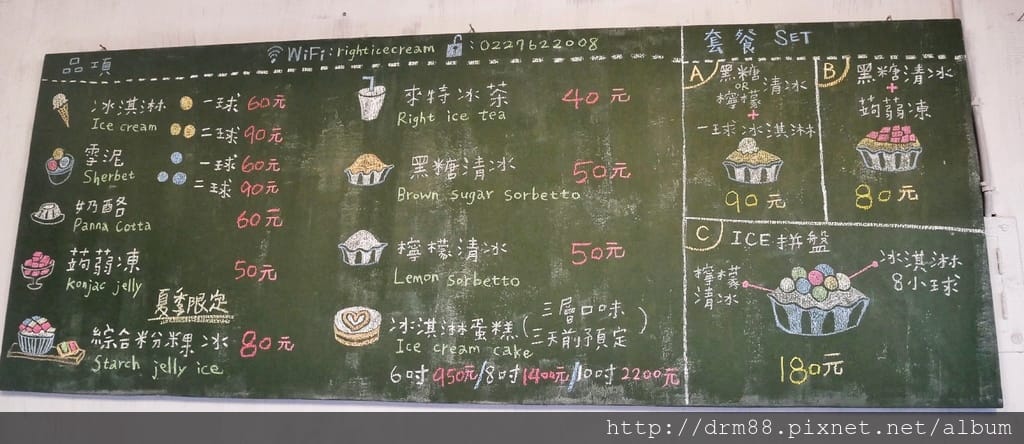 WiFi:righticecream :0227622008
品項
冰淇淋 一球 60元
Ice cream 二球 90元
雪泥 一球 60元
Sherbet 二球 90元
奶酪 60元
Panna Cotta
蒟蒻凍 50元
Konjac jelly
夏季限定
綜合粉粿冰 80元
Starch jelly ice
來特冰茶 40元
Right ice tea
黑糖清冰 50元
Brown sugar sorbetto
檸檬清冰 50元
Lemon sorbetto
冰淇淋蛋糕(三層口味
三天前預定)
Ice cream cake
6吋950元/8吋1400元/10吋2200元
套餐 SET
A
黑糖
OR 清冰
檸檬
+
一球冰淇淋
90元
B
黑糖清冰
+
蒟蒻凍
80元
C ICE拼盤
檸檬
清冰
冰淇淋
8小球
180元
http://drm88.pixnet.net/album